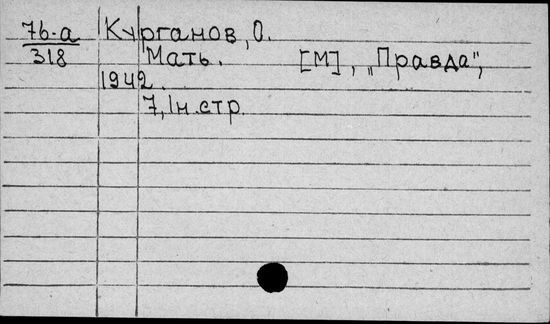 7б-а Курганов, О.
318 Мать. [М], „Правда",
1942.
7, 1н.стр.